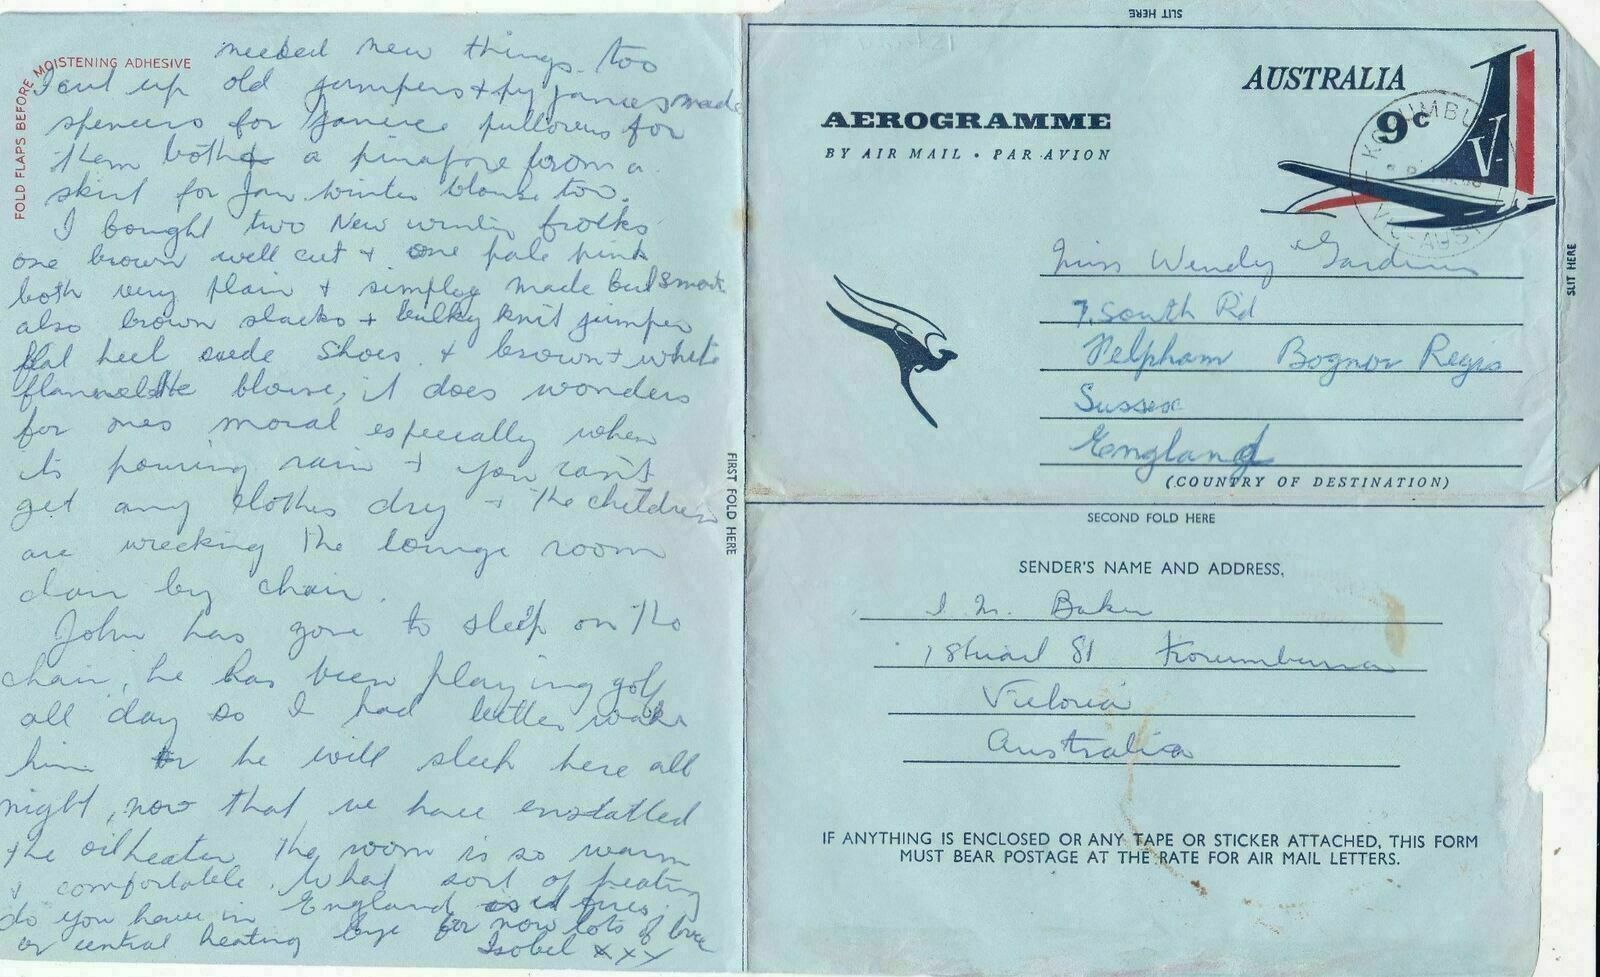 FOLD FLAPS BEFORE MOISTENING ADHESIVE
needed new things too
I cut up old jumpers + pyjamas made
spencers for Janice pullovers for
them both + a pinafore from a
skirt for Jan winter blouse too.
I bought two New winter frocks
one brown well cut + one pale pink
both very plain + simploy made but smart
also brown slacks + bulky knit jumper
flat heel suede shoes + brown + white
flannelette blouse, it does wonders
for ones moral especially when
its pouring rain + you can't
get any clothes dry + the children
are wrecking the lounge room
chair by chair.
John has gone to sleep on the
chair, he has been playing golf
all day so I had better wake
him or he will sleep here all
night, now that we have enstatled
the oilheater the room is so warm
+ comfortable. What sort of heating
do you have in England is it fires
or central heating bye for now lots of love
Isobel xxx
FIRST FOLD HERE
SLIT HERE
AEROGRAMME
BY AIR MAIL • PAR AVION
AUSTRALIA
9c
V-
KORUMBURRA
VIC-AUST
SLIT HERE
Miss Wendy Gardiner
7, South Rd
Felpham Bognor Regis
Sussex
England
(COUNTRY OF DESTINATION)
SECOND FOLD HERE
SENDER'S NAME AND ADDRESS,
I M. Baker
1 Stuart St Korumburra
Victoria
Australia
IF ANYTHING IS ENCLOSED OR ANY TAPE OR STICKER ATTACHED, THIS FORM
MUST BEAR POSTAGE AT THE RATE FOR AIR MAIL LETTERS.